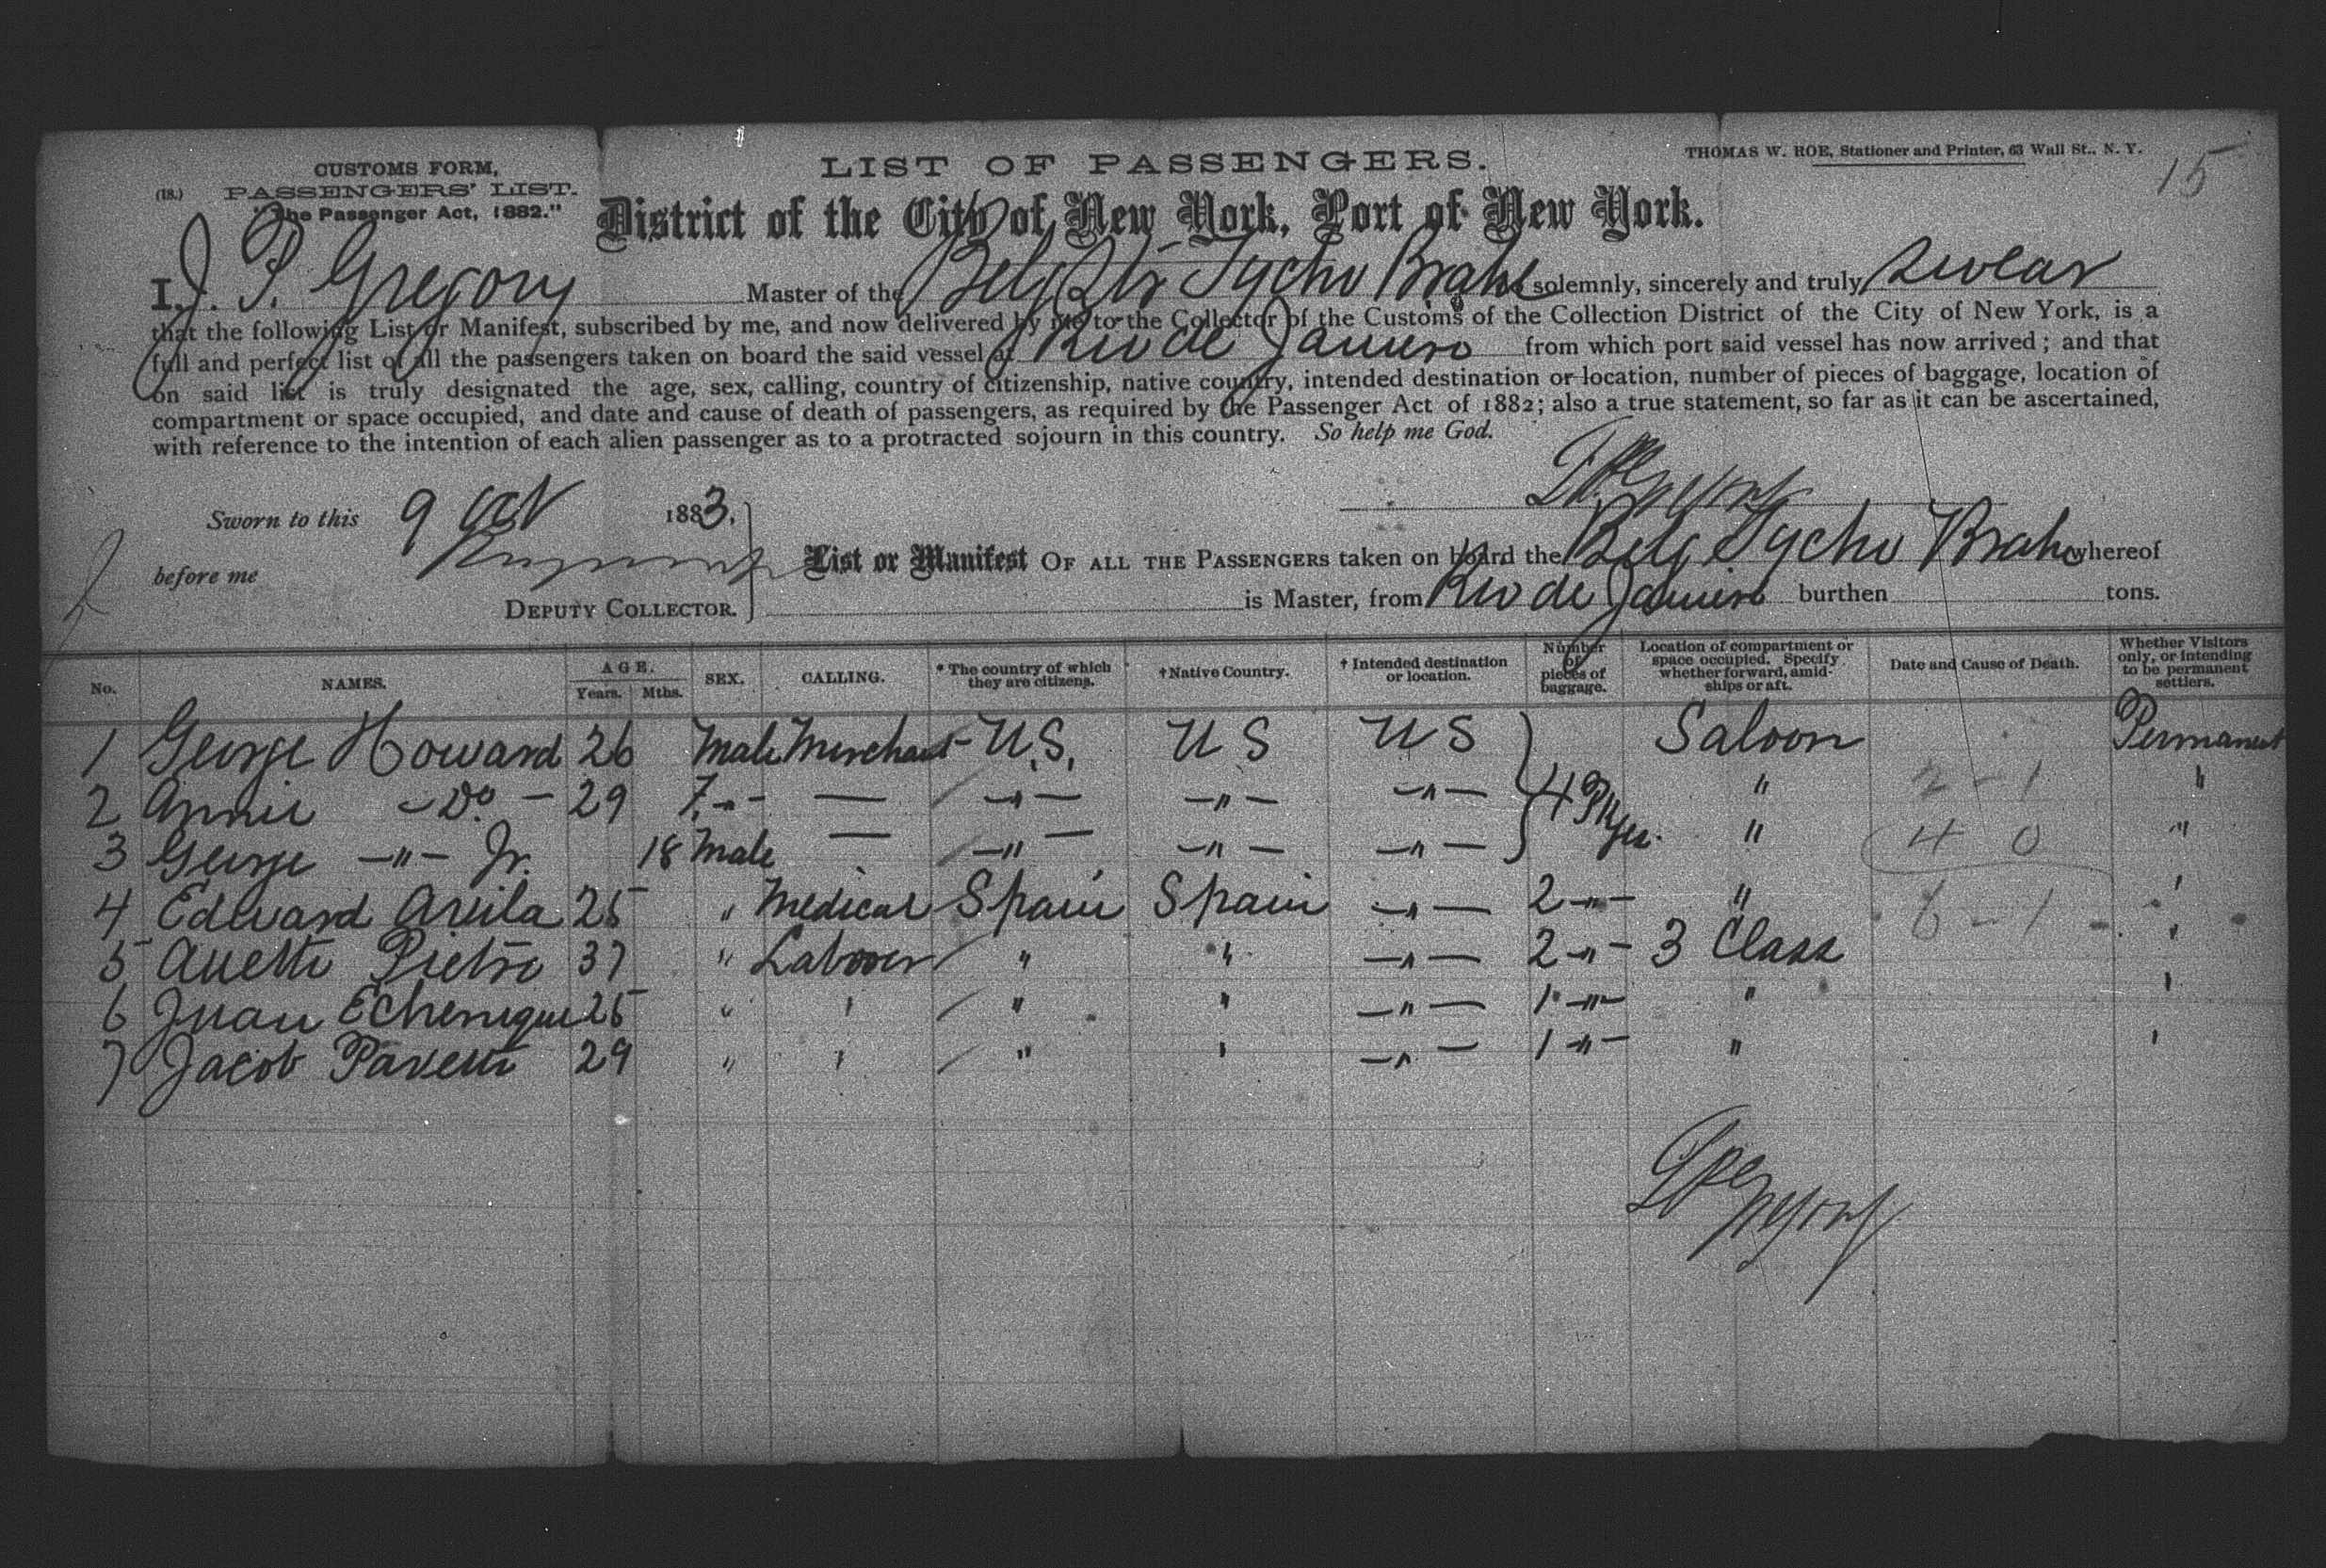 CUSTOMS FORM,
(18.) PASSENGERS' LIST.
"The Passenger Act, 1882."
LIST OF PASSENGERS.
THOMAS W. ROE, Stationer and Printer, 63 Wall St., N. Y.
15
District of the City of New York, Port of New York.
I, J. P. Gregory Master of the Belg Str Tycho Brahe do solemnly, sincerely and truly swear
that the following List or Manifest, subscribed by me, and now delivered by me to the Collector of the Customs of the Collection District of the City of New York, is a
full and perfect list of all the passengers taken on board the said vessel at Rio de Janiero from which port said vessel has now arrived; and that
on said list is truly designated the age, sex, calling, country of citizenship, native country, intended destination or location, number of pieces of baggage, location of
compartment or space occupied, and date and cause of death of passengers, as required by the Passenger Act of 1882; also a true statement, so far as it can be ascertained,
with reference to the intention of each alien passenger as to a protracted sojourn in this country. So help me God.
Sworn to this 9 Oct 1883,
before me
DEPUTY COLLECTOR.
List or Manifest OF ALL THE PASSENGERS taken on board the Belg Tycho Brahe whereof
is Master, from Rio de Janiero burthen tons.
No. NAMES. AGE. Years. Mths. SEX. CALLING. * The country of which they are citizens. † Native Country. † Intended destination or location. Number of pieces of baggage. Location of compartment or space occupied. Specify whether forward, amidships or aft. Date and Cause of Death. Whether Visitors only, or intending to be permanent settlers.
1 George Howard 26 Male Merchant U.S. U S U S Saloon Permanent
2 Annie - Do. - 29 F. - " - — - " - - " - - " - 4 Pkges. " 2 - 1 "
3 George - " - Jr. 18 Male — - " - - " - - " - " 4 0 "
4 Edward Avila 25 " Medical Spain Spain - " - 2 - " - " 6 - 1 "
5 Auetti Pietro 37 " Laborer " " - " - 2 - " - 3 Class "
6 Juan Echenique 25 " " " " - " - 1 - " - " "
7 Jacob Pavetti 29 " " " " - " - 1 - " - " "